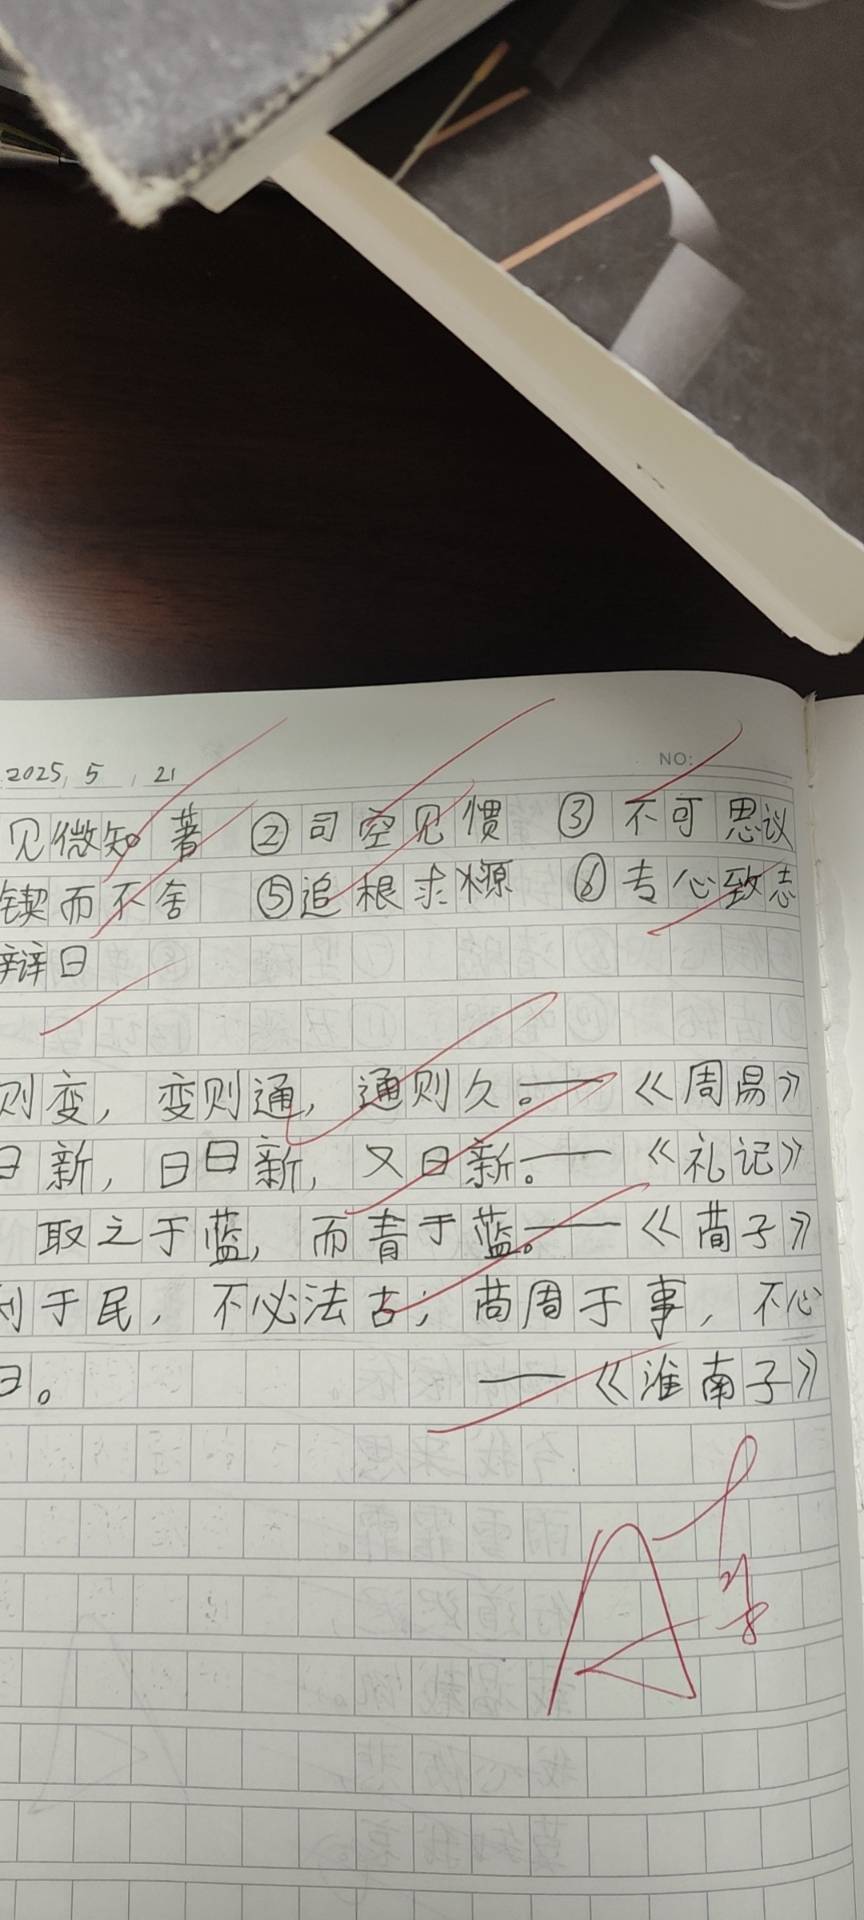 2025, 5, 21 NO:
见微知著 ②司空见惯 ③不可思议
锲而不舍 ⑤追根求源 ⑥专心致志
辩日
则变，变则通，通则久。——《周易》
日新，日日新，又日新。——《礼记》
取之于蓝，而青于蓝。——《荀子》
利于民，不必法古；苟周于事，不心
日。 ——《淮南子》
A